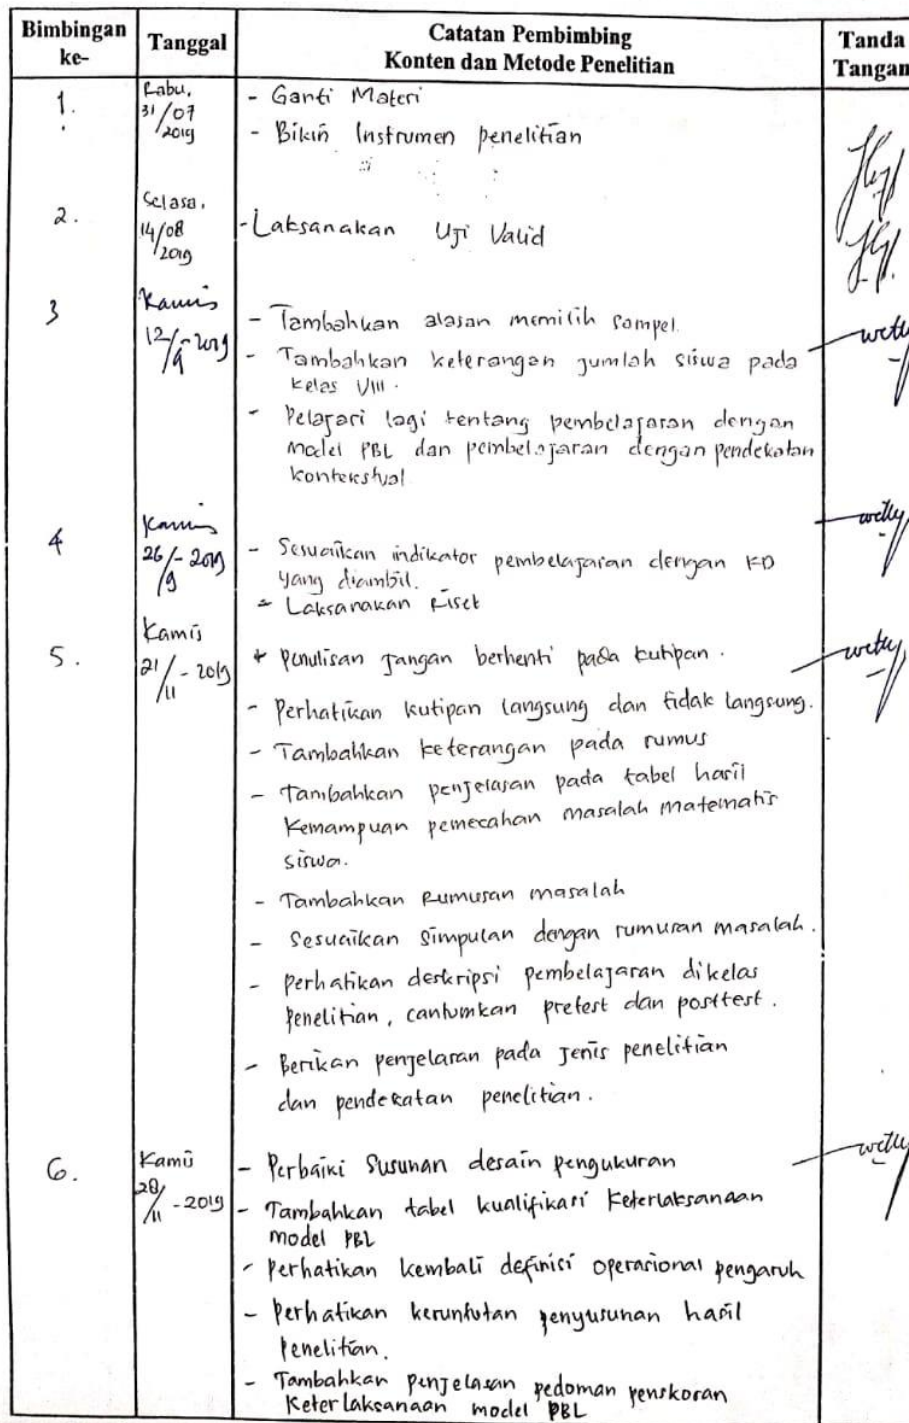 Bimbingan ke-
Tanggal
Catatan Pembimbing
Konten dan Metode Penelitian
Tanda Tangan
1.
Rabu,
31/07
2019
- Ganti Materi
- Bikin Instrumen penelitian
2.
Selasa,
14/08
2019
- Laksanakan Uji Valid
3
Kamis
12/9-2019
- Tambahkan alasan memilih sampel.
- Tambahkan keterangan jumlah siswa pada
kelas VIII.
- Pelajari lagi tentang pembelajaran dengan
model PBL dan pembelajaran dengan pendekatan
kontekstual
4
Kamis
26/9-2019
- Sesuaikan indikator pembelajaran dengan KD
yang diambil.
- Laksanakan Riset
5.
Kamis
21/11-2019
+ Penulisan jangan berhenti pada kutipan.
- Perhatikan kutipan langsung dan tidak langsung.
- Tambahkan keterangan pada rumus
- Tambahkan penjelasan pada tabel hasil
Kemampuan pemecahan masalah matematis
siswa.
- Tambahkan Rumusan masalah
- Sesuaikan simpulan dengan rumusan masalah.
- Perhatikan deskripsi pembelajaran dikelas
Penelitian, cantumkan pretest dan posttest.
- Berikan penjelasan pada jenis penelitian
dan pendekatan penelitian.
6.
Kamis
28/11-2019
- Perbaiki Susunan desain pengukuran
- Tambahkan tabel kualifikasi Keterlaksanaan
model PBL
- Perhatikan kembali definisi operasional pengaruh
- Perhatikan keruntutan penyusunan hasil
Penelitian.
- Tambahkan penjelasan pedoman penskoran
Keterlaksanaan model PBL